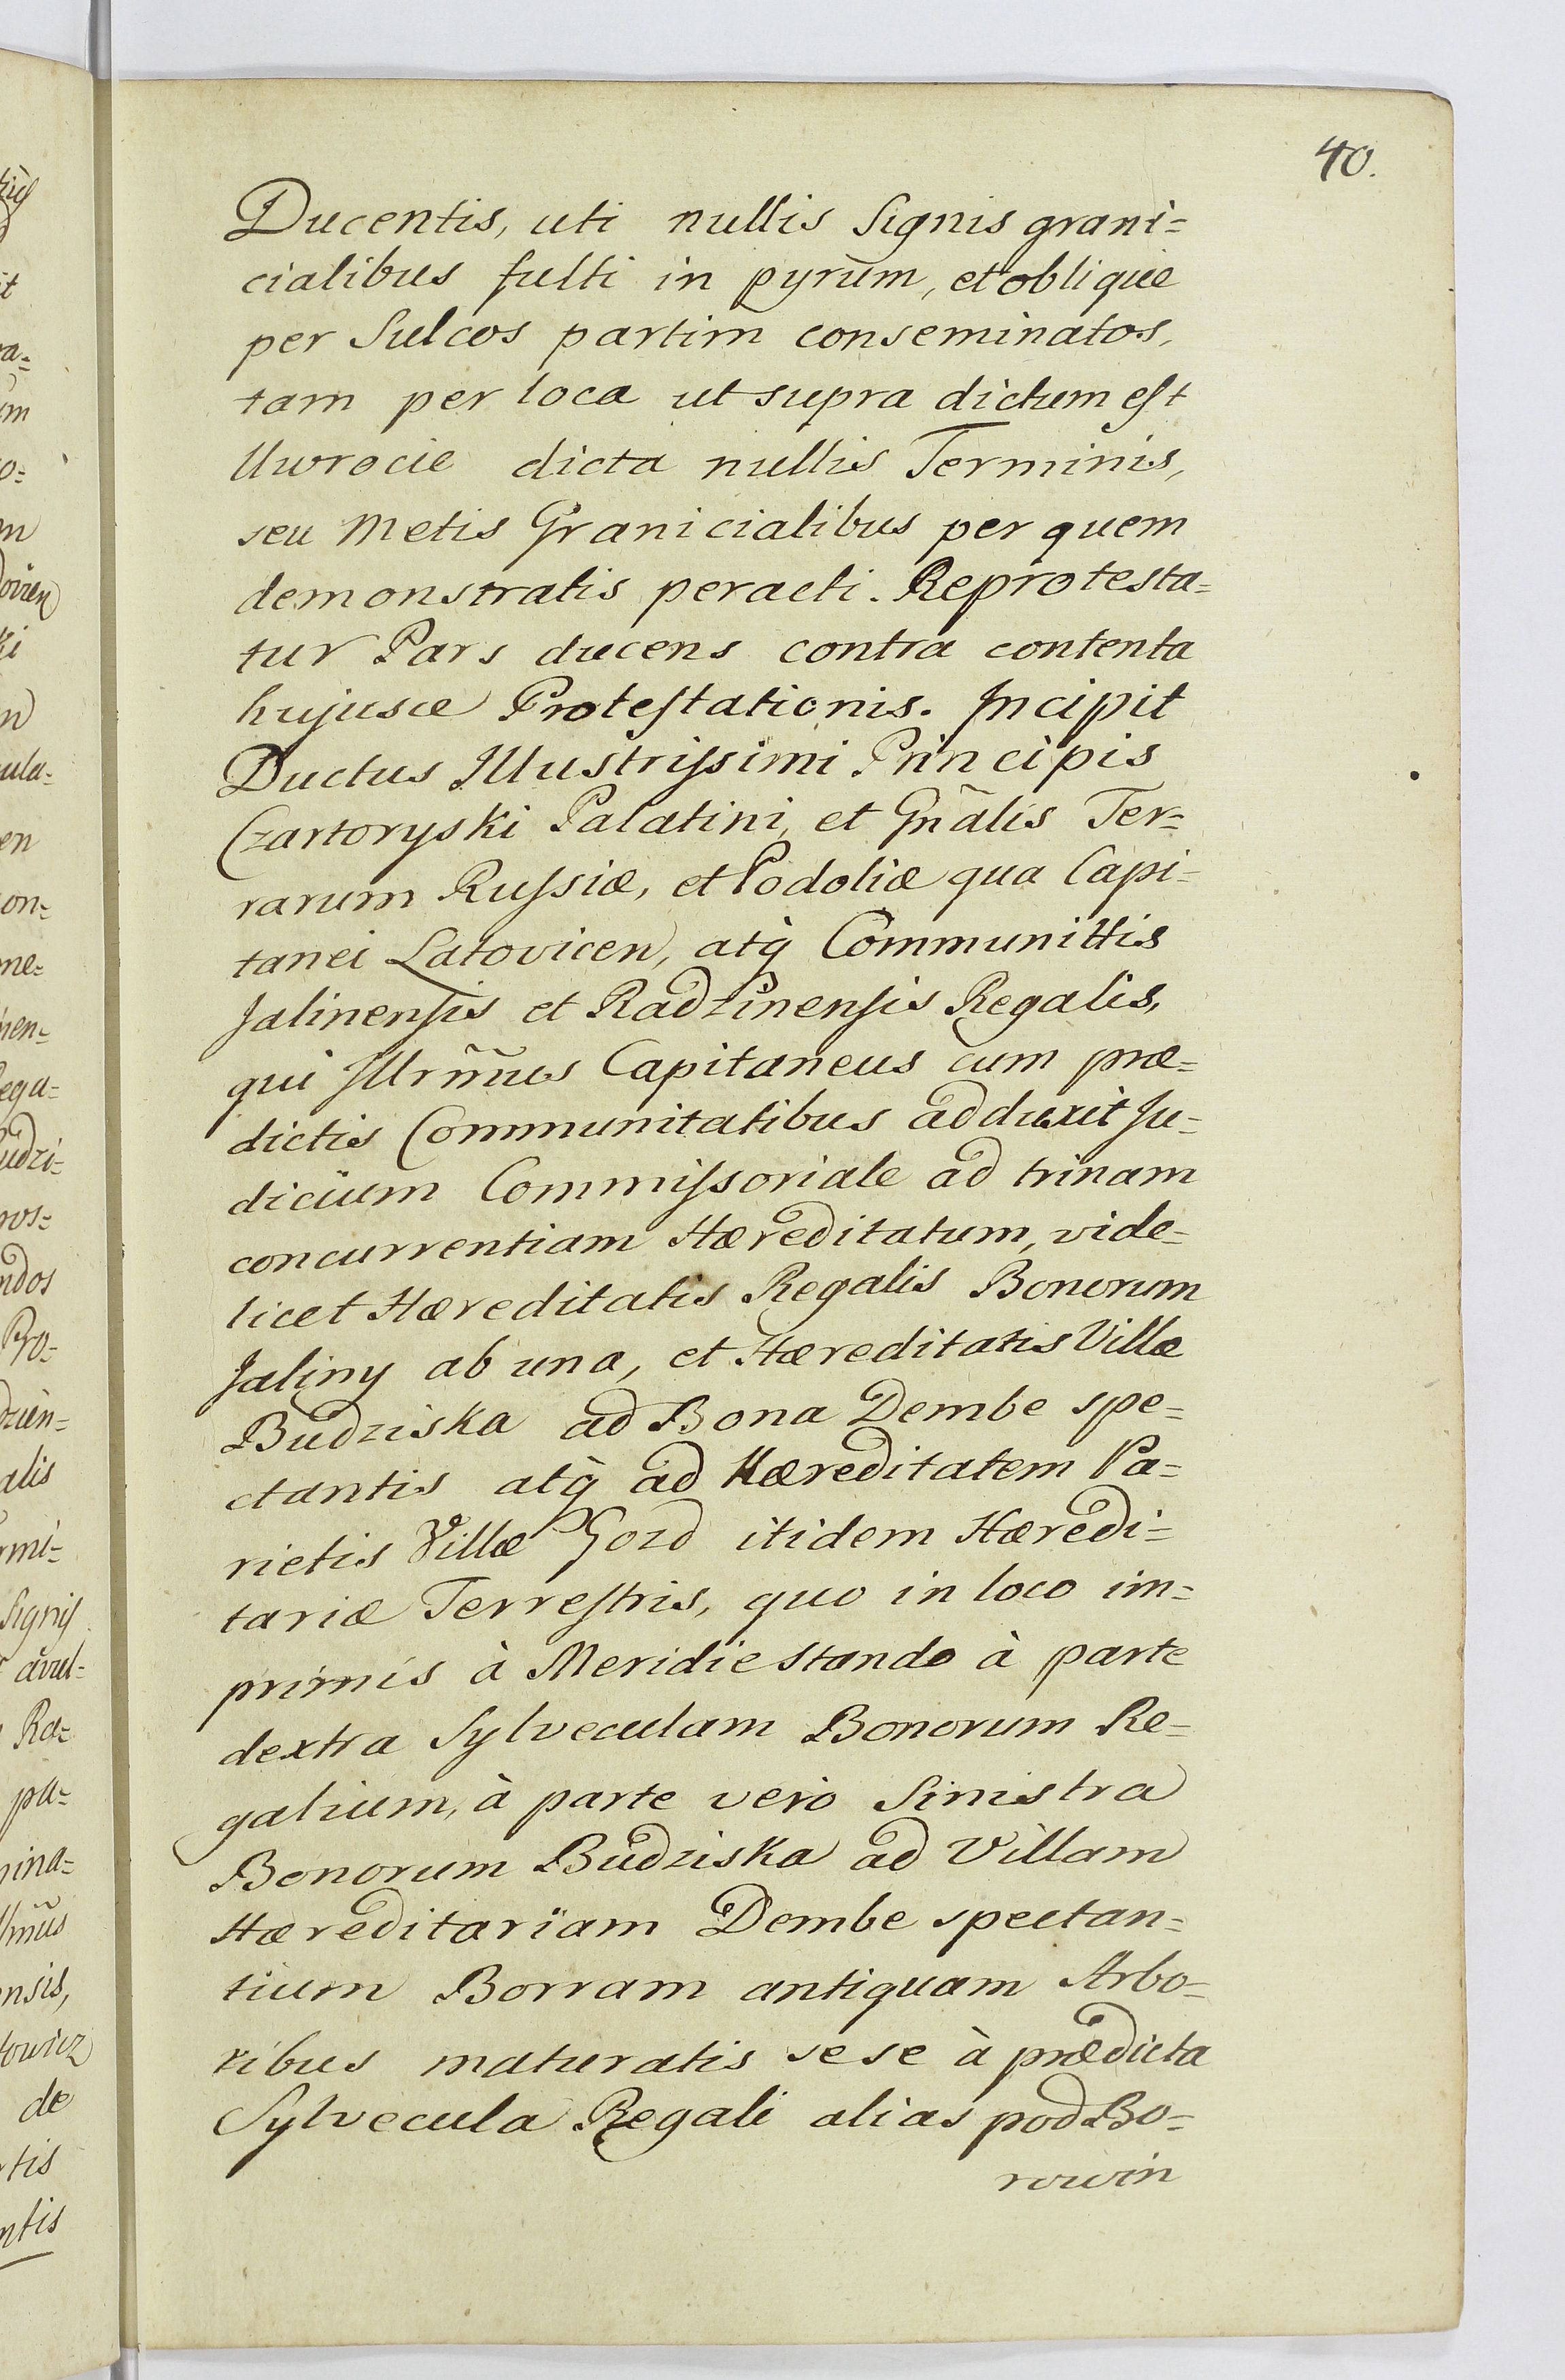 40.
Ducentis, uti nullis Signis grani=
cialibus fulti in pyrum, et oblique
per Sulcos partim conseminatos,
tam per loca ut supra dictum est
Uwrocie dicta nullis Terminis,
seu Metis Granicialibus per quem
demonstratis peracti. Reprotesta=
tur Pars ducens contra contenta
hujusce Protestationis. Incipit
Ductus Illustrissimi Principis
Czartoryski Palatini, et Gñalis Ter=
rarum Russiæ, et Podoliæ qua Capi=
tanei Latovicen, atq̀ Communittis
Jalinensis et Radzinensis Regalis,
qui Illrm̃us Capitaneus cum præ=
dictis Communitatibus adduxit Ju=
dicium Commissoriale ad trinam
concurrentiam Hæreditatum, vide=
licet Hæreditatis Regalis Bonorum
Jaliny ab una, et Hæreditatis Villæ
Budziska ad Bona Dembe spe=
ctantis atq̀ ad Hæreditatem Pa=
rietis Villæ Gozd itidem Hæredi=
tariæ Terrestris, quo in loco im=
primis à Meridie stando à parte
dextra Sylveculam Bonorum Re=
galium, à parte verò Sinistra
Bonorum Budziska ad Villam
Hæreditariam Dembe spectan=
tium Borram antiquam Arbo=
ribus maturatis sese à prædicta
Sylvecula Regali alias pod Bo=
rowin
ius
it
ra=
um
o=
m
ovien
ki
n
cula=
en
con=
me=
nen=
ega=
udzi=
ros=
ndos
Pro=
dzien=
alis
rmi=
Signis
avul=
Ra=
pa=
nina=
llmũs
ensis,
towicz
de
tis
ntis